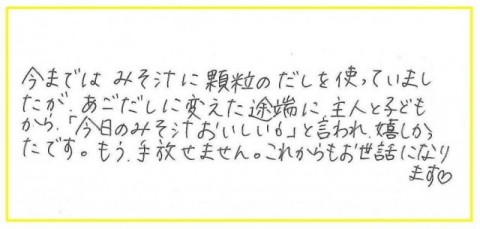 今まではみそ汁に顆粒のだしを使っていまし
たが、あごだしに変えた途端に、主人と子ども
から、「今日のみそ汁おいしいね」と言われ、嬉しかっ
たです。もう、手放せません。これからもお世話になり
ます♡